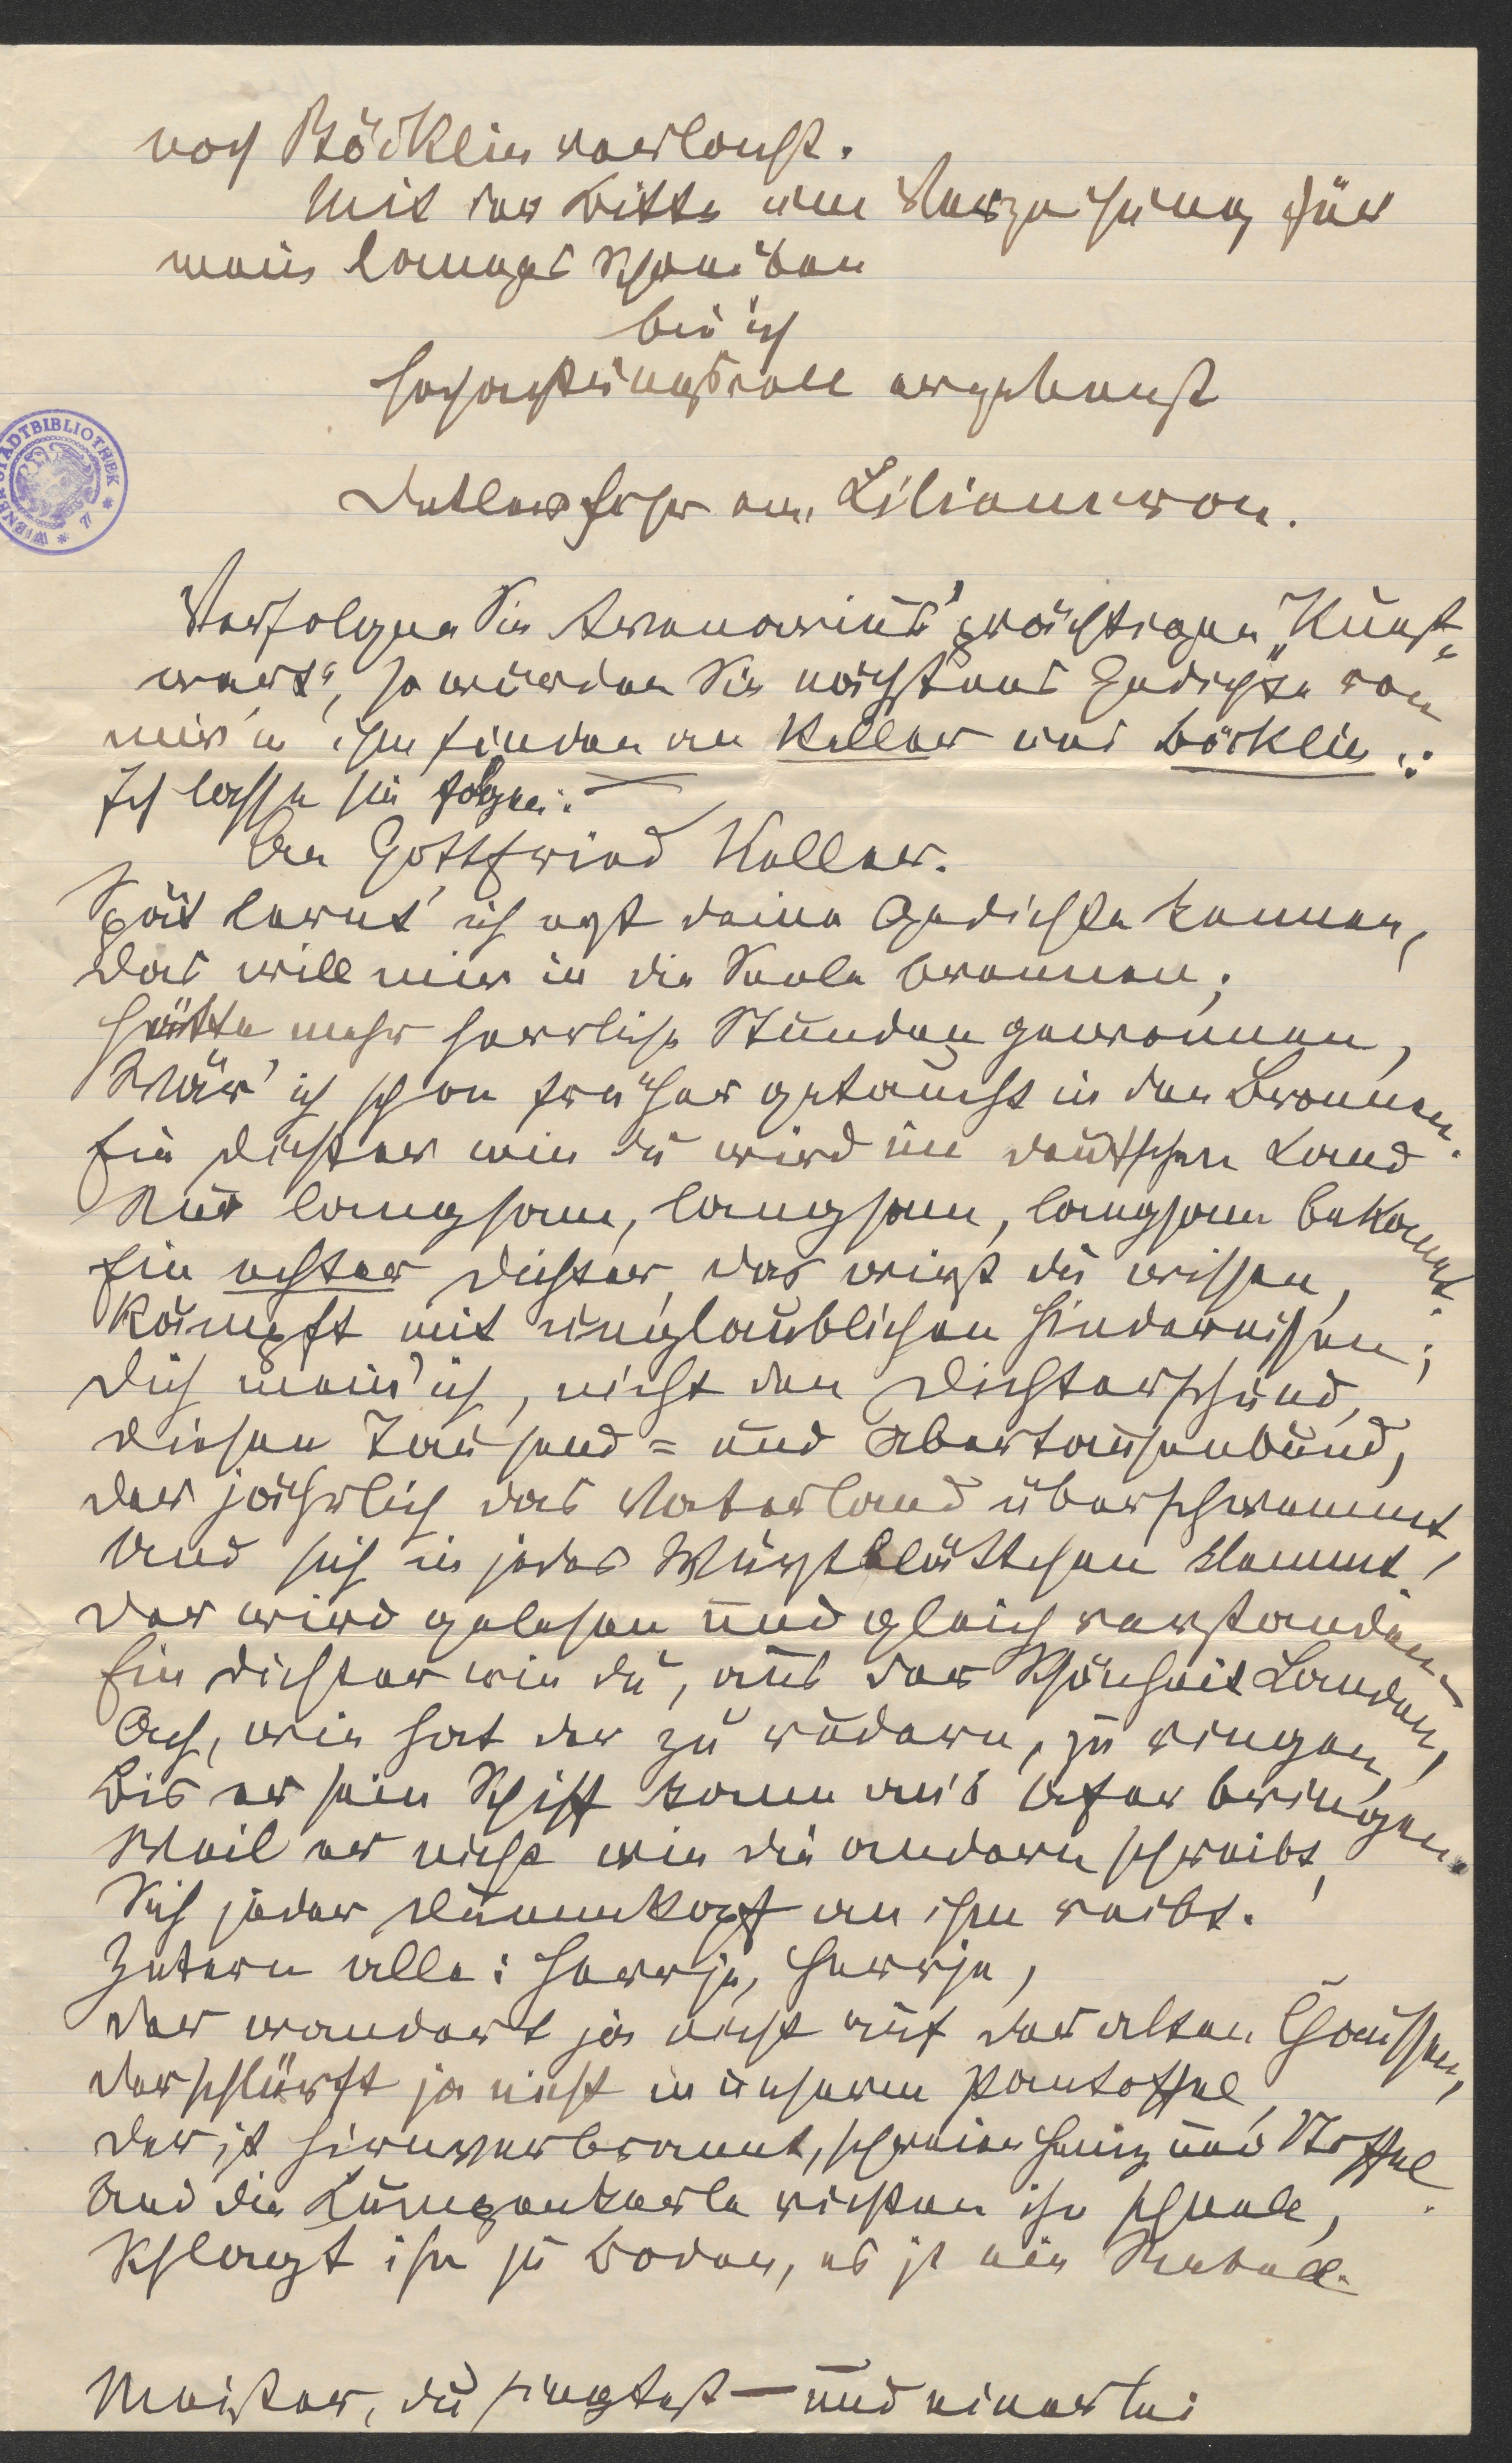 nach Böcklin verlangst.
Mit der Bitte um Verzeihung für
mein langes Schreiben
bin ich
hochachtungsvoll ergebenst
Detlev Frhr von Liliencron.
WIENER STADTBIBLIOTHEK
Verfolgen Sie Avenarius' prächtigen „Kunst-
wart", so würden Sie nächstens Gedichte von
mir in ihm finden an Keller und Böcklin.:
Ich lasse sie folgen:
An Gottfried Keller.
Spät lernt' ich erst deine Gedichte kennen,
Das will mir in die Seele brennen;
Hätte mehr herrliche Stunden gewonnen,
Wär' ich schon früher getaucht in den Bronnen.
Ein Dichter wie du wird im deutschen Land
Nur langsam, langsam, langsam bekannt.
Ein echter Dichter, das wirst du wissen,
Kämpft mit unglaublichen Hindernissen;
Dich mein' ich, nicht den Dichterschund,
Diesen Tausend- und Abertausenbund,
Der jährlich das Vaterland überschwemmt
Und sich in jedes Wurstblättchen klemmt,
Der wird gelesen und gleich verstanden.
Ein Dichter wie du, aus der Schönheit Landen,
Ach, wie hat der zu rudern, zu ringen,
Bis er sein Schiff kann an's Ufer bringen.
Weil er nicht wie die andern schreibt,
Sich jeder Dummkopf an ihm reibt.
Zetern alle: Herrje, Herrje,
Der wandert ja nicht auf der alten Chaussee,
Der schlürft ja nicht in unserm Pantoffel,
Der ist hirnverbrannt, schreien Heinz und Stoffel.
Und die Lumpenkerle richten ihn schnell,
Schlagt ihn zu Boden, es ist ein Rebell.
Meister, du singtest — und einerlei